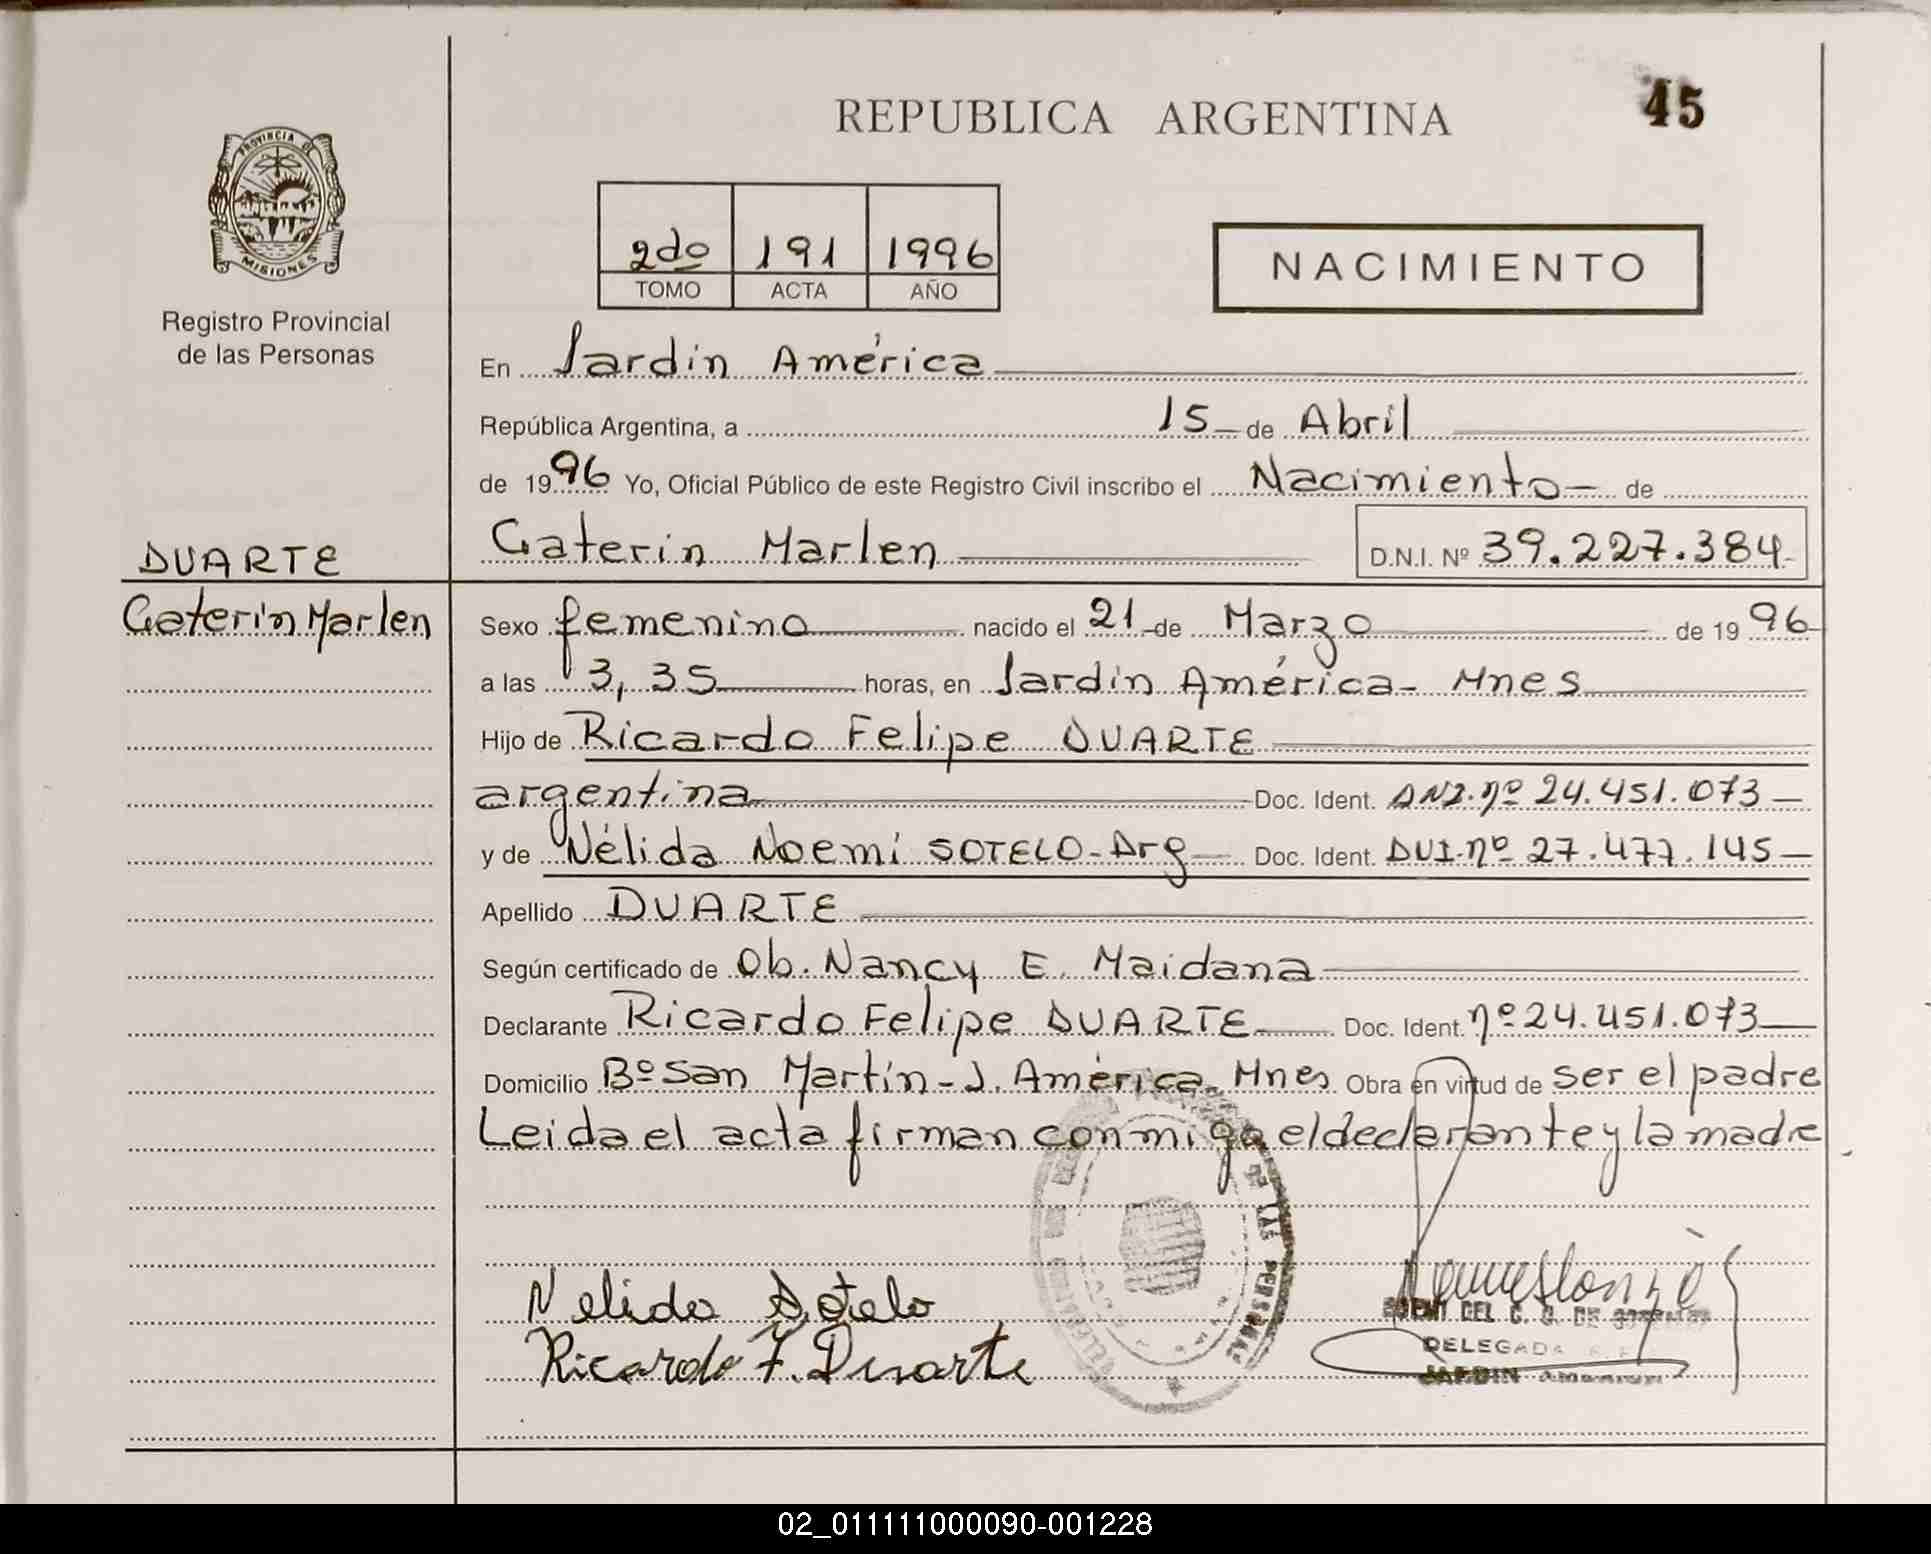 REPUBLICA ARGENTINA
45
PROVINCIA DE
MISIONES
Registro Provincial
de las Personas
2do 191 1996
TOMO ACTA AÑO
NACIMIENTO
En Jardin América
República Argentina, a 15 de Abril
de 1996 Yo, Oficial Público de este Registro Civil inscribo el Nacimiento de
Caterin Marlen D.N.I. Nº 39.227.384
DUARTE
Caterin Marlen
Sexo femenino nacido el 21 de Marzo de 1996
a las 3,35 horas, en Jardin América - Mnes
Hijo de Ricardo Felipe DUARTE
argentina Doc. Ident. DNI. nº 24.451.073
y de Nélida Noemi SOTELO - Arg Doc. Ident. DUI. nº 27.477.145
Apellido DUARTE
Según certificado de Ob. Nancy E. Maidana
Declarante Ricardo Felipe DUARTE Doc. Ident. nº 24.451.073
Domicilio Bº San Martín - J. América - Mnes Obra en virtud de ser el padre
Leida el acta firman conmigo el declarante y la madre
DE LAS PERSONAS
Nelida Sotelo
Ricardo F. Duarte
DEL C. G. DE
DELEGADA
JARDIN AMERICA
02_011111000090-001228